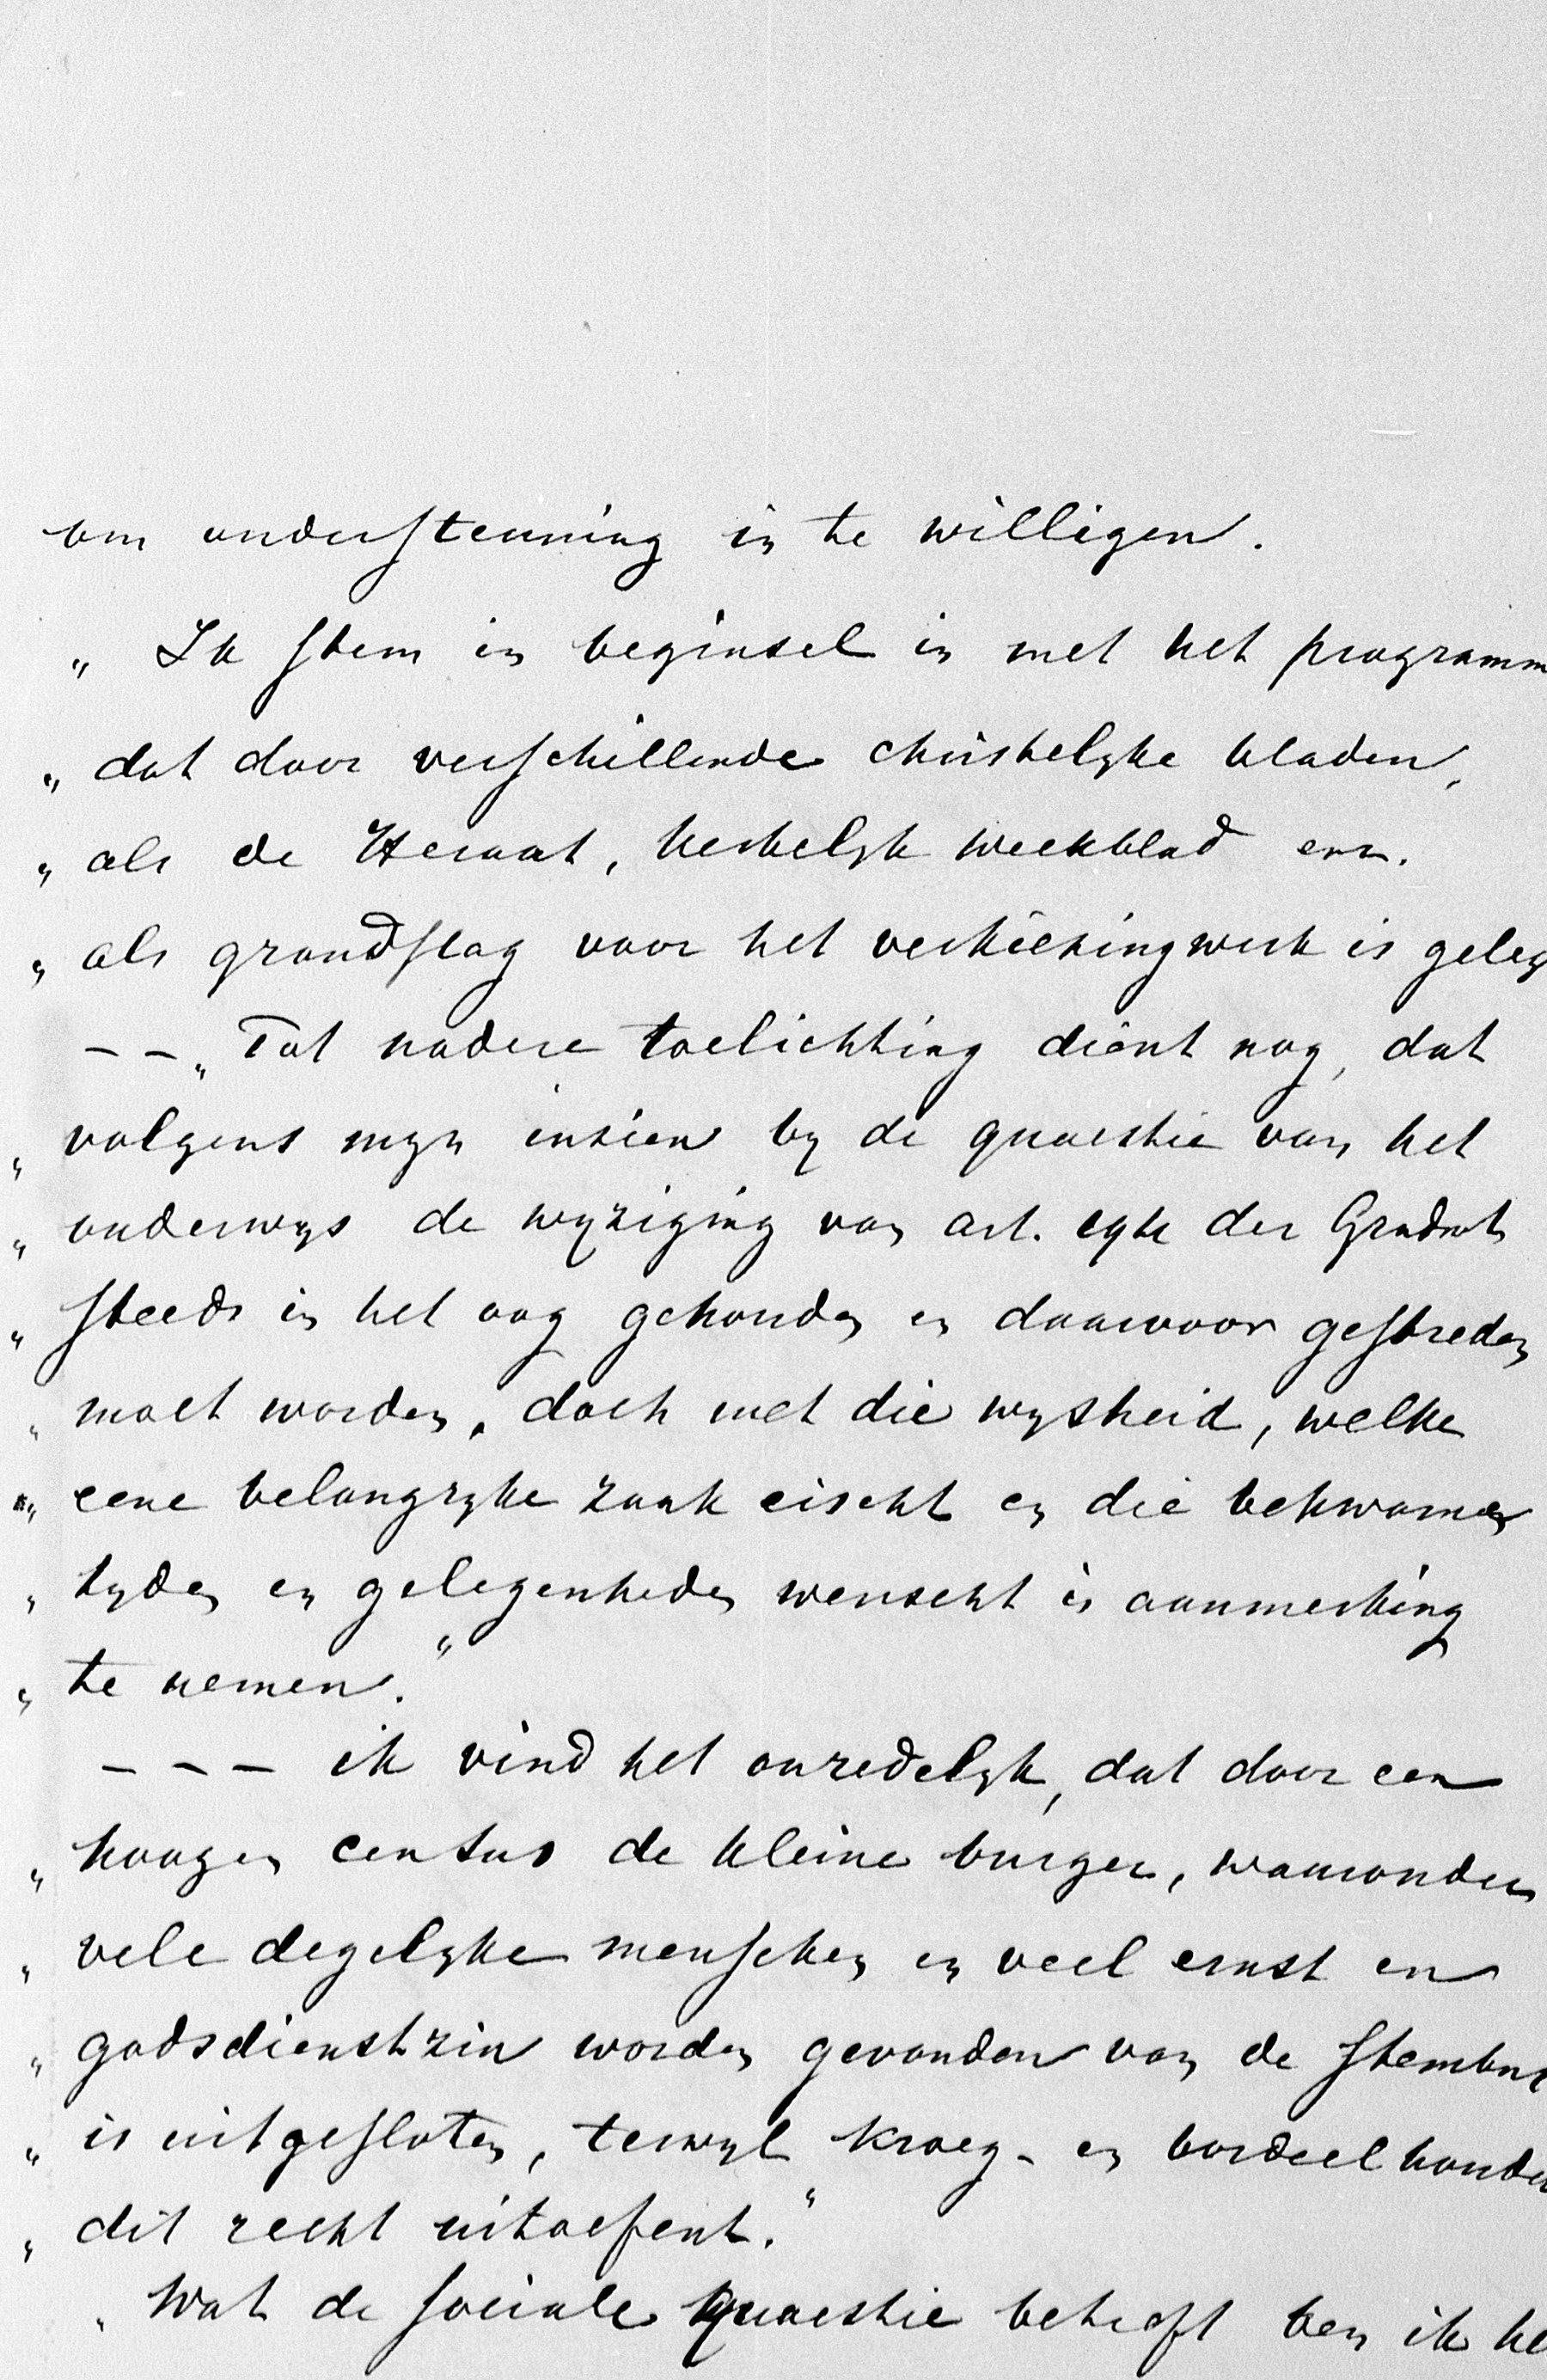 om ondersteuning in te willigen.
„ Ik stem in beginsel in met het programm
„ dat door verschillende christelyke bladen,
„ als de Heraut, kerkelyk weekblad enz.
„ als grondslag voor het verkiezingwerk is geleg
– – „ Tot nadere toelichting dient nog, dat
„ volgens myn inzien by de quaestie van het
„ onderwys de wyziging van art. der Grndwt
„ steeds in het oog gehouden en daarvoor gestreden
„ moet worden, doch met die wysheid, welke
„ eene belangryke zaak eischt en die bekwame
„ tyden en gelegenheden wenscht in aanmerking
„ te nemen."
– – – ik vind het onredelyk, dat door een
„ hoogen census de kleine burger, waaronder
„ vele degelyke menschen en veel ernst en
„ godsdienstzin worden gevonden van de stembus
„ is uitgesloten, terwyl kroeg- en bordeelhouder
„ dit recht uitoefent."
„ Wat de sociale quaestie betreft ben ik he